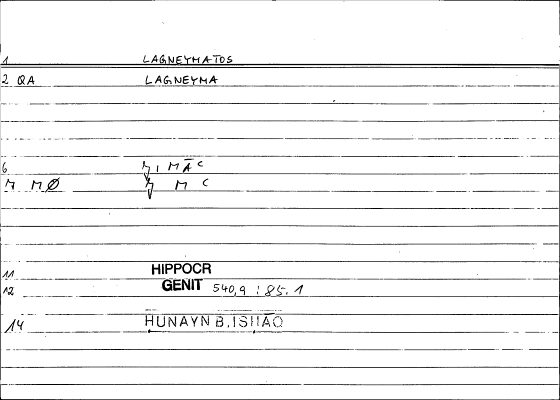 1 LAGNEYMATOS
2 QA LAGNEYMA
6
M MØ M C
11 HIPPOCR
12 GENIT 540,9 : 85.1
14 HUNAYN B. ISḤĀQ